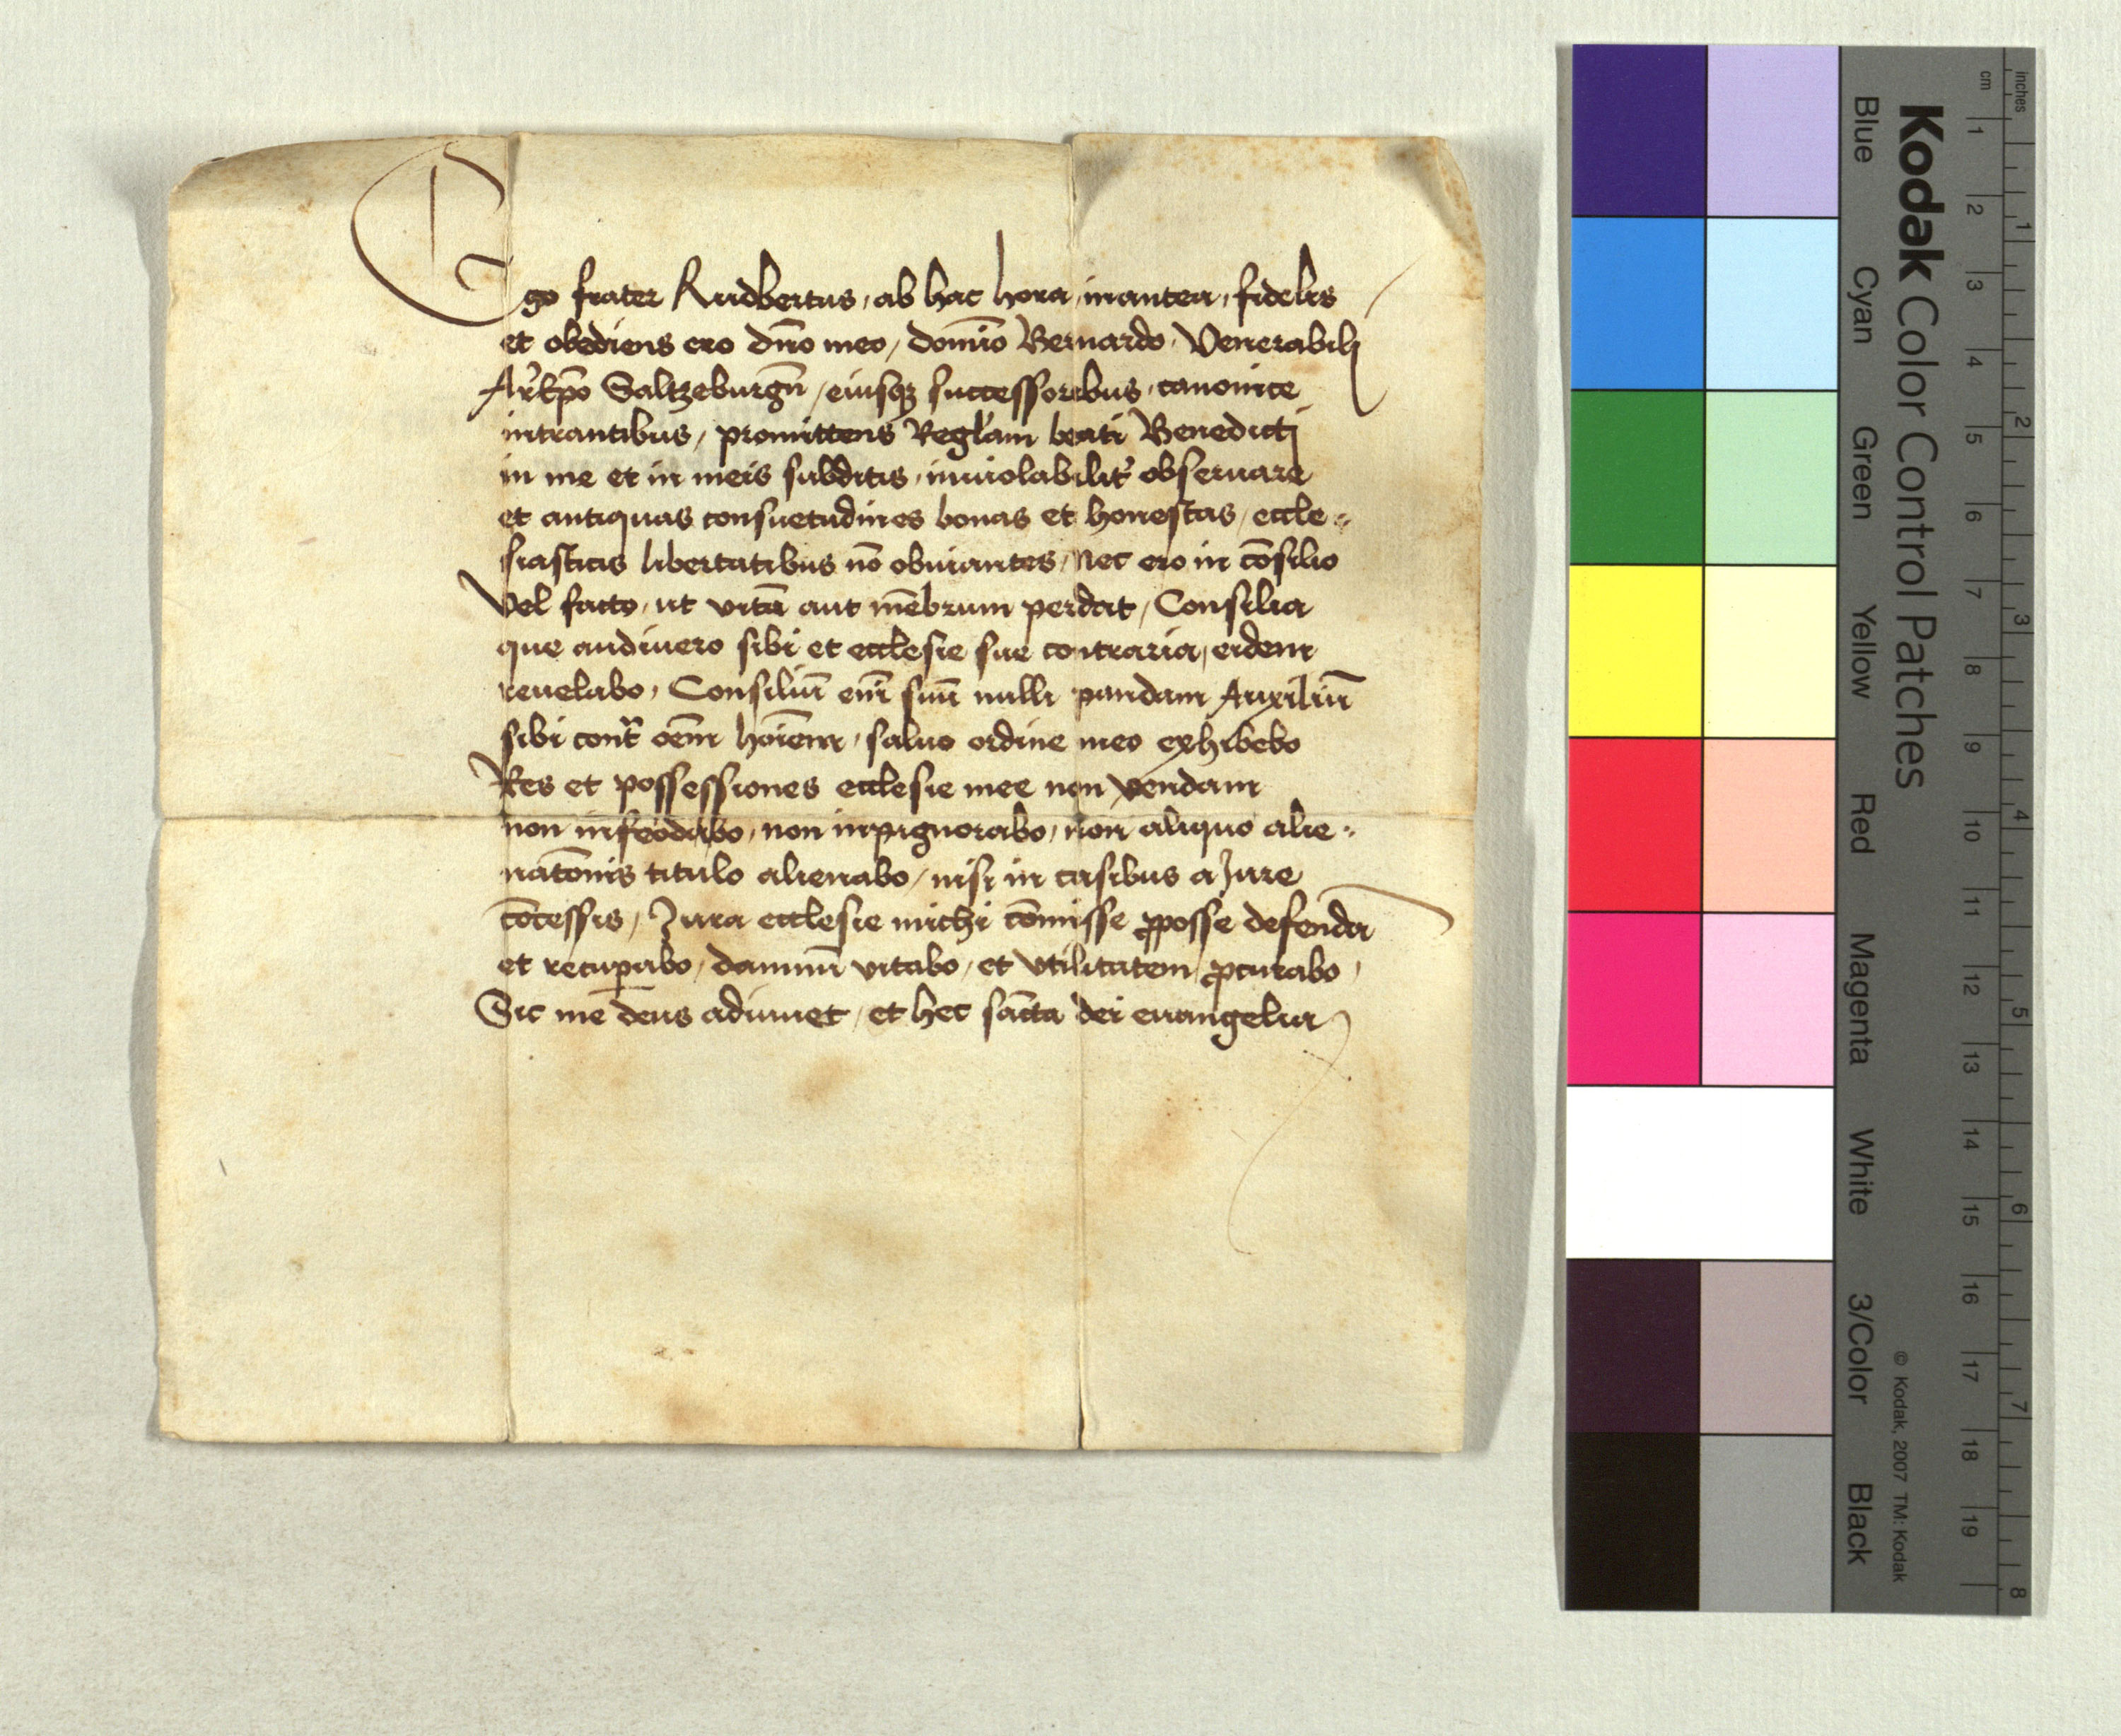 Ego frater Rudbertus, ab hac hora, inantea, fidelis
et obediens ero dn̄o meo, domīo Bernardo, Venerabilj
Ar̉kp̄o Saltzeburgn̄, eiusqꝫ successoribus, canonice
intrantibus, promittens Regl̉am beati Benedictj
in me et in meis subditis, inuiolabilit̉ obseruare
et antiquas consuetudines bonas et honestas, eccle⸗
siasticis libertatibus nō obuiantes, Nec ero in cōsilio
Vel facto, ut vitā aut mēbrum perdat, Consilia
que audiuero sibi et ecclesie sue contraria, eidem
reuelabo, Consiliū em̄ suū nulli pandam Auxiliū
sibi contᷓ oēm hoīem, saluo ordine meo exhibebo
Res et possessiones ecclesie mee non vendam
non infeodabo, non inpignorabo, non aliquo alie⸗
natōnis titulo alienabo, nisi in casibus a Jure
cōcessis, Jura ecclesie michi cōmisse ꝓposse defendā
et recuꝑabo, damnū vitabo, et vtilitatem ꝓcurabo,
Sic me deus adiuuet, et hec sācta dei euangelia
Kodak Color Control Patches
Blue Cyan Green Yellow Red Magenta White 3/Color Black
© Kodak, 2007 TM: Kodak
cm 1 2 3 4 5 6 7 8 9 10 11 12 13 14 15 16 17 18 19
inches 1 2 3 4 5 6 7 8